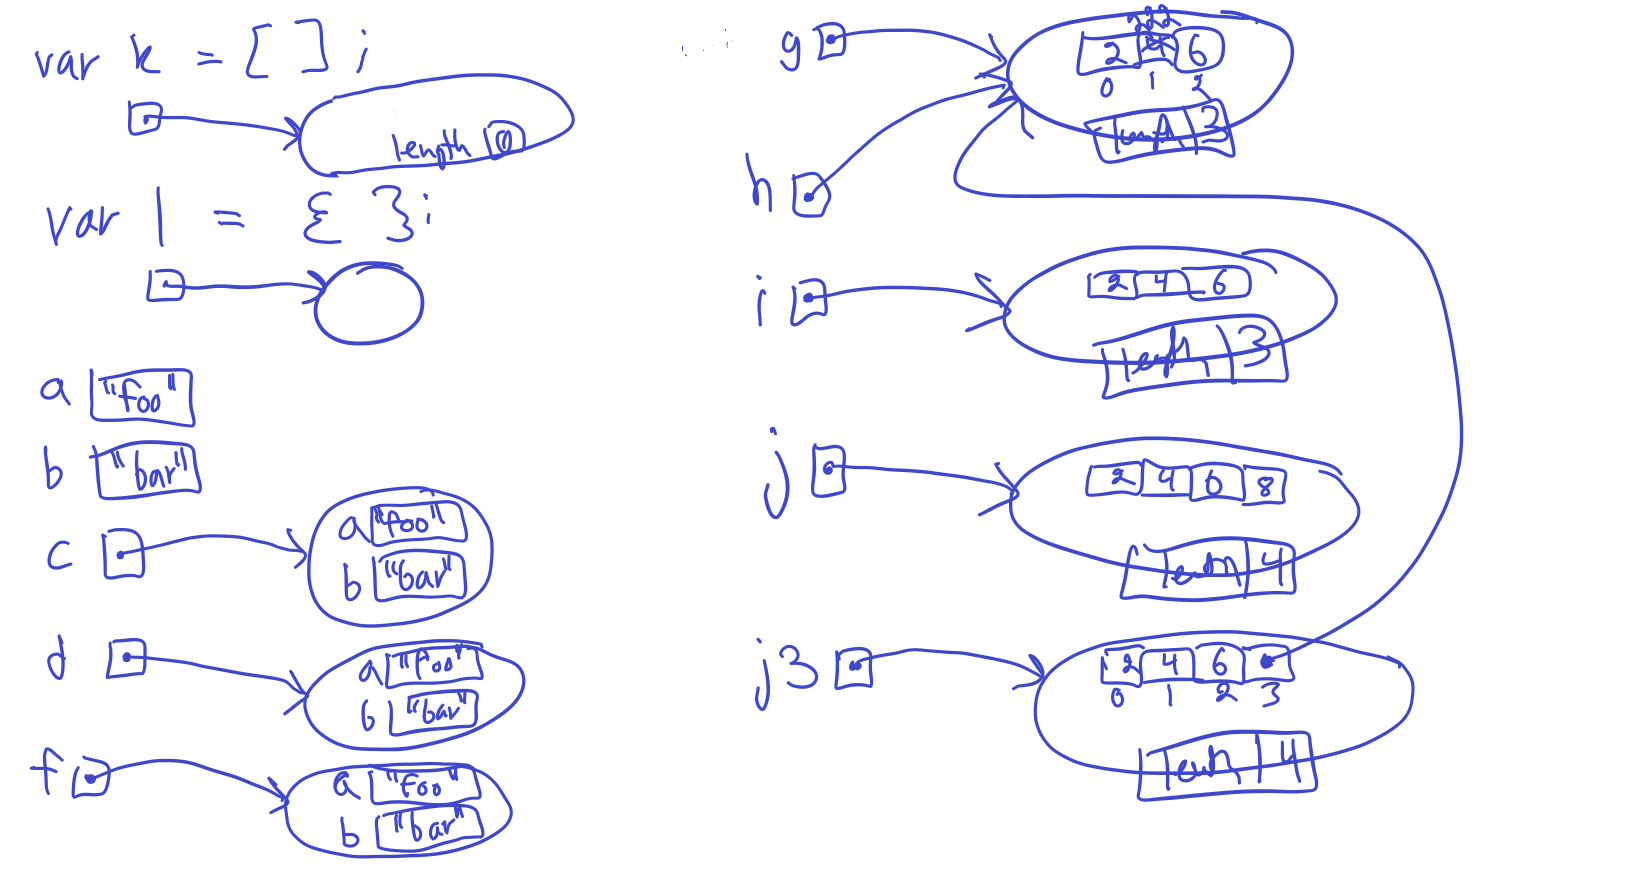 var k = [ ] ;
length 0
var l = { } ;
a "foo"
b "bar"
c
a "foo"
b "bar"
d
a "foo"
b "bar"
f
a "foo"
b "bar"
g
222
2 4 6
0 1 2
length 3
h
i
2 4 6
length 3
j
2 4 6 8
length 4
j3
2 4 6
0 1 2 3
length 4